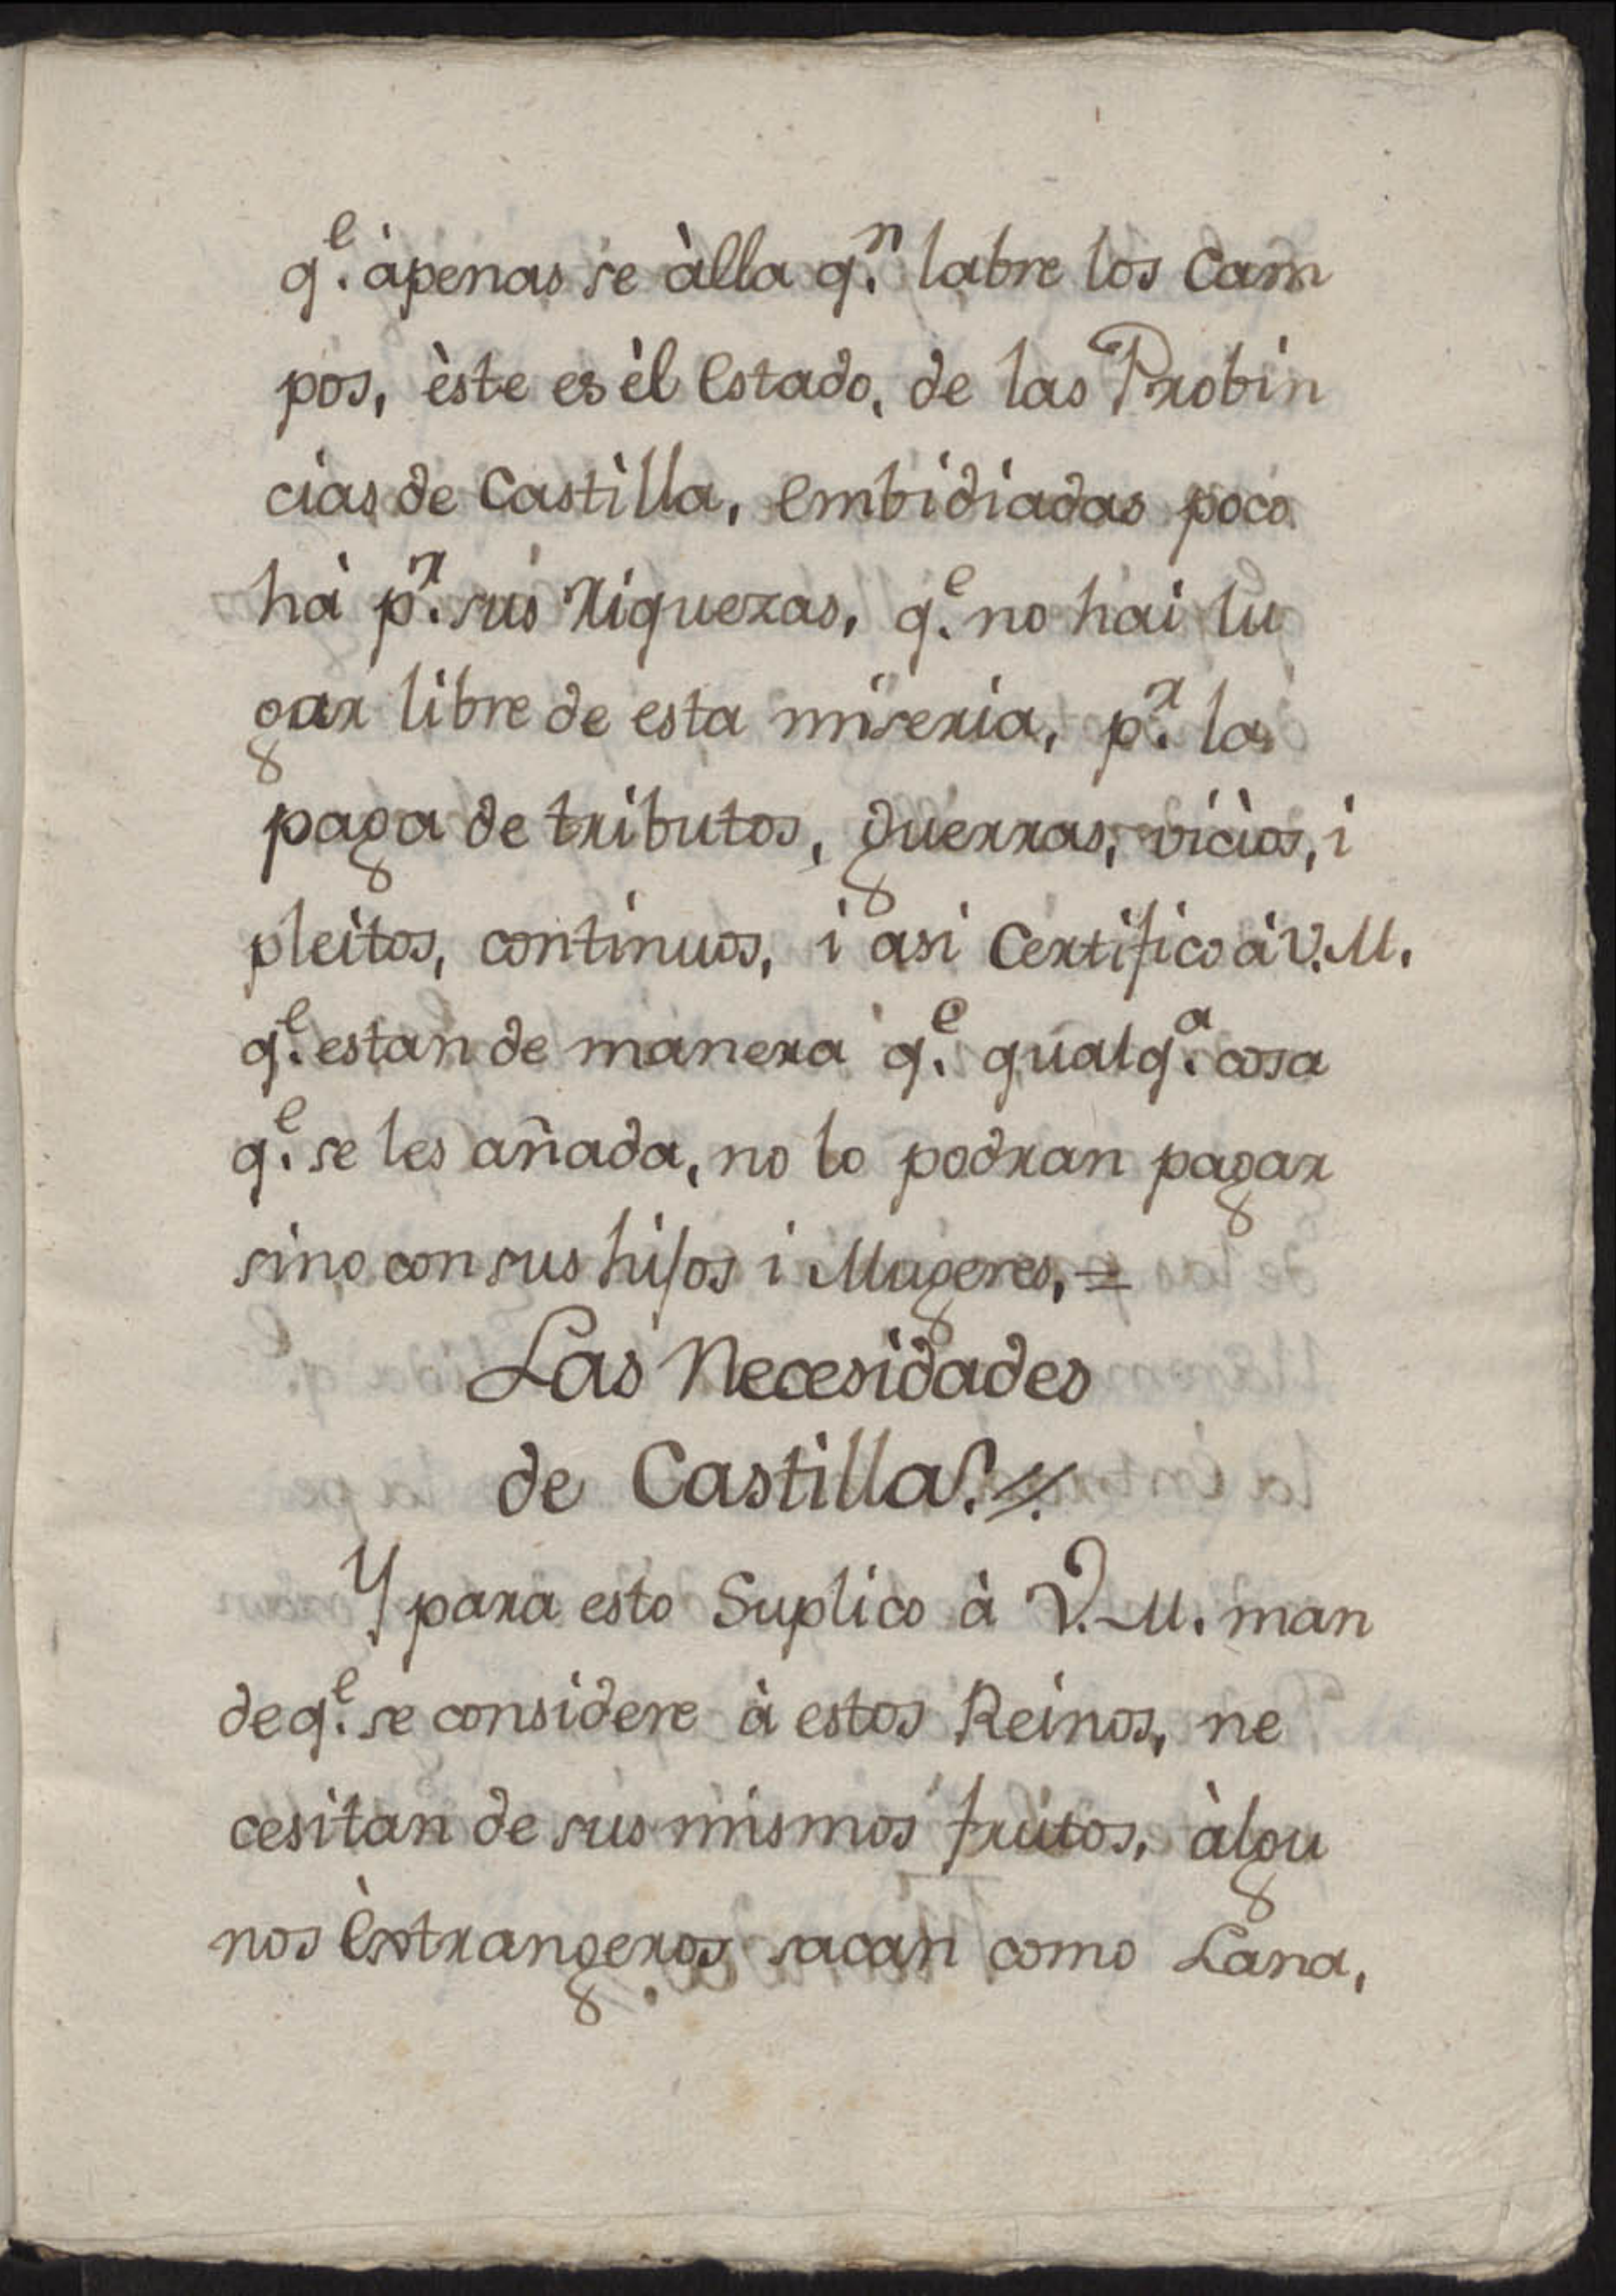 q.e àpenas se àlla q.n labre los Cam
pos, èste es èl Estado, de las Probin
cias de Castilla, embidiadas poco
hà p.r sus riquezas, q.e no hai lu
gar libre de esta miseria, p.r la
paga de tributos, guerras, vicios, i
pleitos, continuos, i asi Certifico à V.M.
q.e estan de manera q.e qualq.a cosa
q.e se les añada, no lo podran pagar
sino con sus hijos i Mugeres, =
Las Necesidades
de Castilla.
Y para esto Suplico à V.M. man
de q.e se considere à estos Reinos, ne
cesitan de sus mismos frutos, àlgu
nos Èstrangeros sacan como Lana,